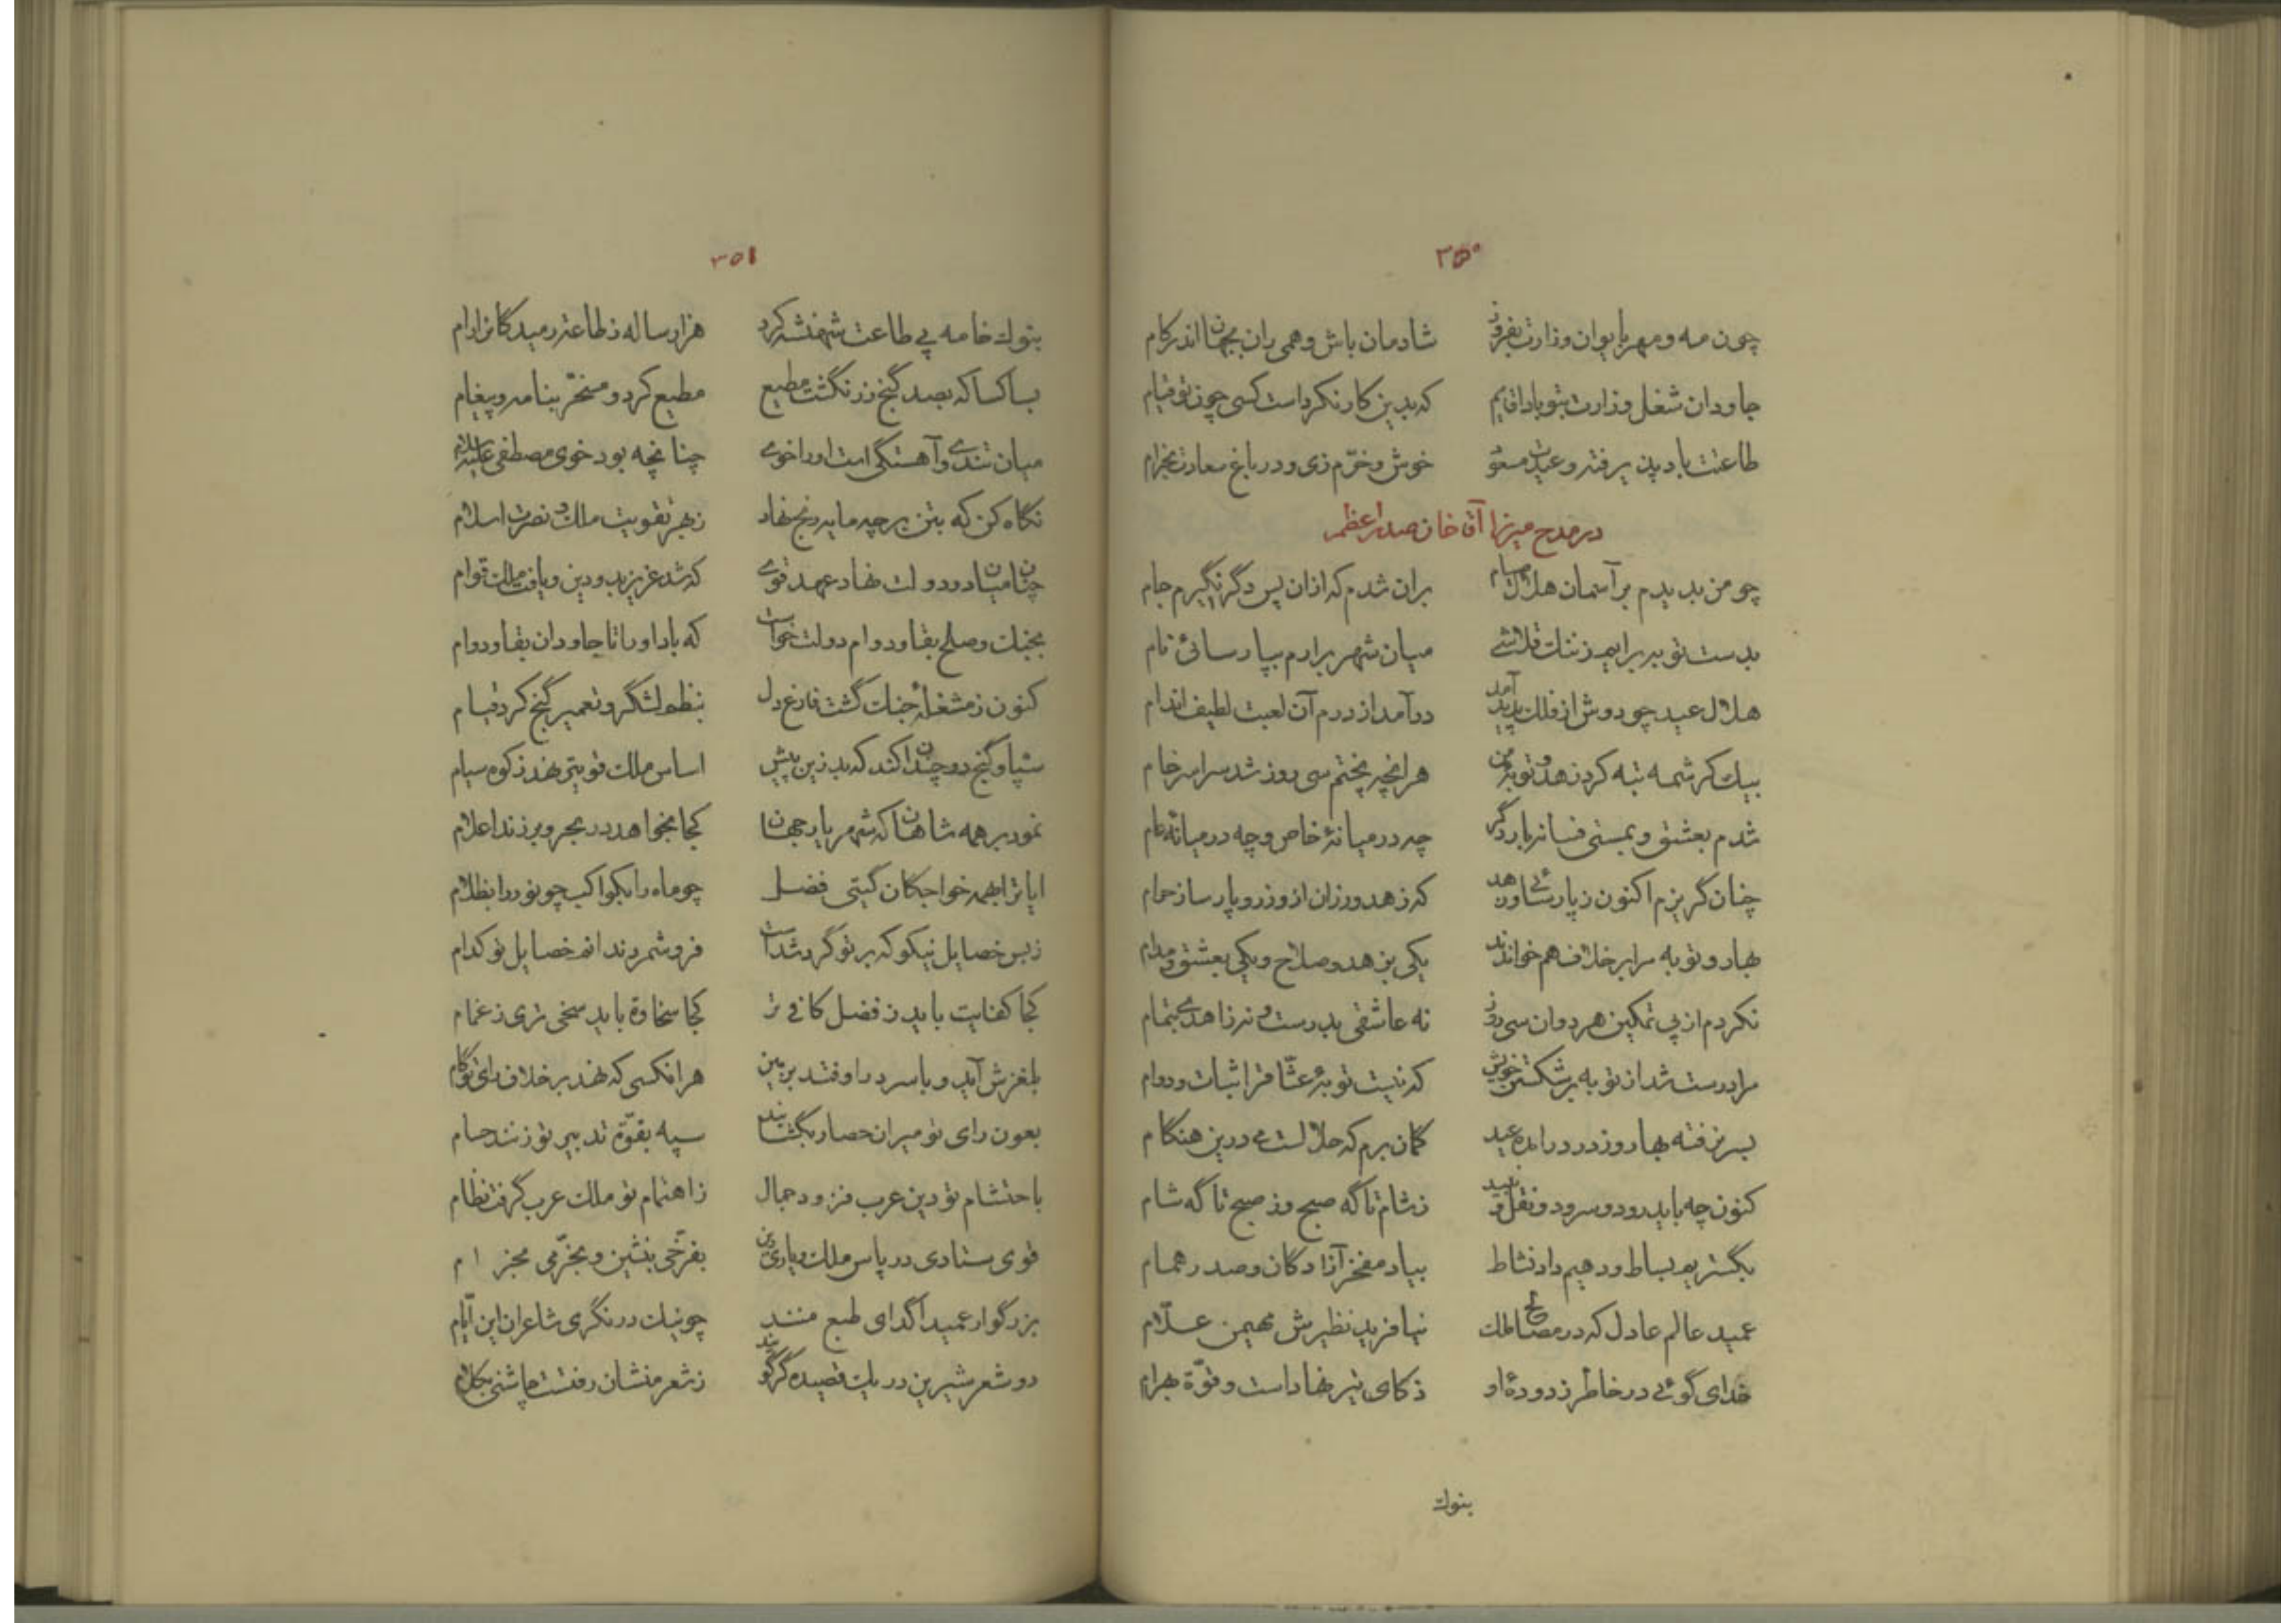 ۳۵۰
چون مه و مهر بایوان وزارت بفروز شادمان باش و همی ران بجهان اندر کام
جاودان شغل وزارت بتو باداقایم که بدین کار نکرداست کسی چون تو قیام
طاعتت باد پذیرفته و عیدت مسعود خوش و خرّم زی و در باغ سعادت بخرام
در مدح میرزا آقا خان صدراعظم
چو من بدیدم بر آسمان هلال صیام بران شدم که ازان پس دگر نگیرم جام
بدست توبه برایم ز ننک قلاشی میان شهر برارم بپارسائی نام
هلال عید چو دوش از فلک پدید آمد درآمد از درم آن لعبت لطیف اندام
بیک کرشمه تبه کرد زهد و توبهٔ من هرانچه پختم سی روز شد سراسر خام
شدم بعشق و بمستی فسانه بار دگر چه در میانهٔ خاص و چه در میانهٔ عام
چنان گریزم اکنون ز پارسائی و زهد که زهد ورزان از وزر و پارسا ز حرام
بهار و توبه مرا بر خلاف هم خواندند یکی بزهد و صلاح و یکی بعشق و مدام
نکردم از پی تمکین هردوان سی روز نه عاشقی بدرستی و نه زاهدی بتمام
مرا درست شد از توبه بر شکستن خویش که نیست توبهٔ عشّاق را ثبات و دوام
بسر نرفته بهار و ز در درامده عید گمان برم که حلالست می درین هنگام
کنون چه باید رود و سرود و نقل و نبید ز شام تا گه صبح و ز صبح تا گه شام
بگستریم بساط و دهیم داد نشاط بیاد مفخر آزادگان و صدر همام
عمید عالم عادل که در مصالح ملک نیافرید نظیرش مهیمن علّام
خدای گوئی در خاطر زدودهٔ او ذکای تیر نهاداست و قوّة بهرام
بنوک
۳۵۱
بنوک خامه پی طاعت شهنشه کرد هزار ساله ز طاعت رمیدگانرا رام
بسا کسا که بصد گنج زر نگشت مطیع مطیع کرد و مسخّر بنامه و پیغام
میان تندی و آهستگی است او را خوی چنانچه بود خوی مصطفی علیه السلام
نگاه کن که بتن بر چه مایه رنج نهاد ز بهر تقویت ملک و نصرت اسلام
چنان میان دو دولت نهاد عهد قوی که شد عزیز بدو دین و یافت ملک قوام
بجنک و صلح بقا و دوام دولت خواست که باد او را تا جاودان بقا و دوام
کنون ز مشغلهٔ جنک گشت فارغ دل بنظم لشگر و تعمیر گنج کرد قیام
سپاه و گنج دوچندان کند که بد زین پیش اساس ملک قویتر نهد ز کوه سیام
نمود بر همه شاهان که شهریار جهان کجا بخواهد در بحر و بر زند اعلام
ایا ترا بهمه خواجکان گیتی فضل چو ماه را بکواکب چو نور را بظلام
ز بس خصایل نیکو که بر تو گرد شداست فرو شمرد ندانم خصایل تو کدام
کجا کفایت باید ز فضل کافی تر کجا سخاوة باید سخی تری ز غمام
بلغزش آید و با سر در اوفتد بزمین هرانکسی که نهد بر خلاف رای تو گام
بعون رای تو میران حصار بگشایند سپه بقوّة تدبیر تو زنند حسام
باحتشام تو دین عرب فزود جمال ز اهتمام تو ملک عرب گرفت نظام
قوی ستادی در پاس ملک و یاری دین بفرّخی بنشین و بخرّمی بخرام
بزرگوار عمیدا گدای طبع منند چو نیک در نگری شاعران این ایّام
دو شعر شیرین در یک قصیده گر گویند ز شعر منشان رفتست چاشنی بکلام